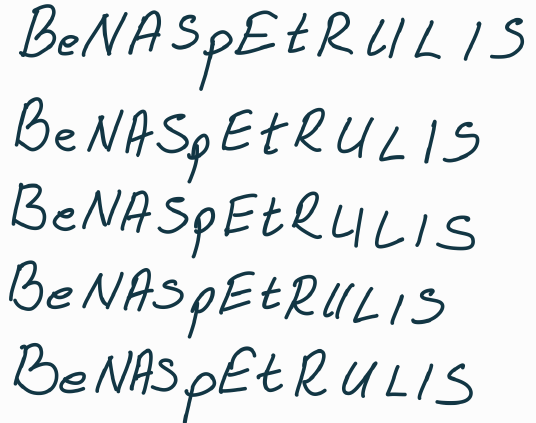 BeNASpEtRULIS
BeNASpEtRULIS
BeNASpEtRULIS
BeNASpEtRULIS
BeNASpEtRULIS